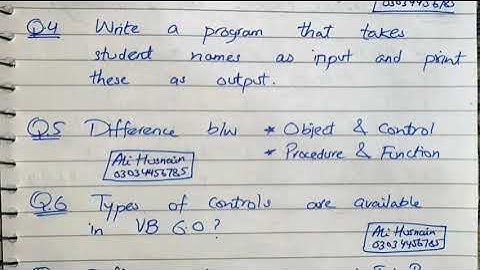 03034456785
Q.4 Write a program that takes
student names as input and print
these as output.
Q.5 Difference b/w * Object & Control
* Procedure & Function
Ali Husnain
03034456785
Q.6 Types of controls are available
in VB 6.0?
Ali Husnain
03034456785